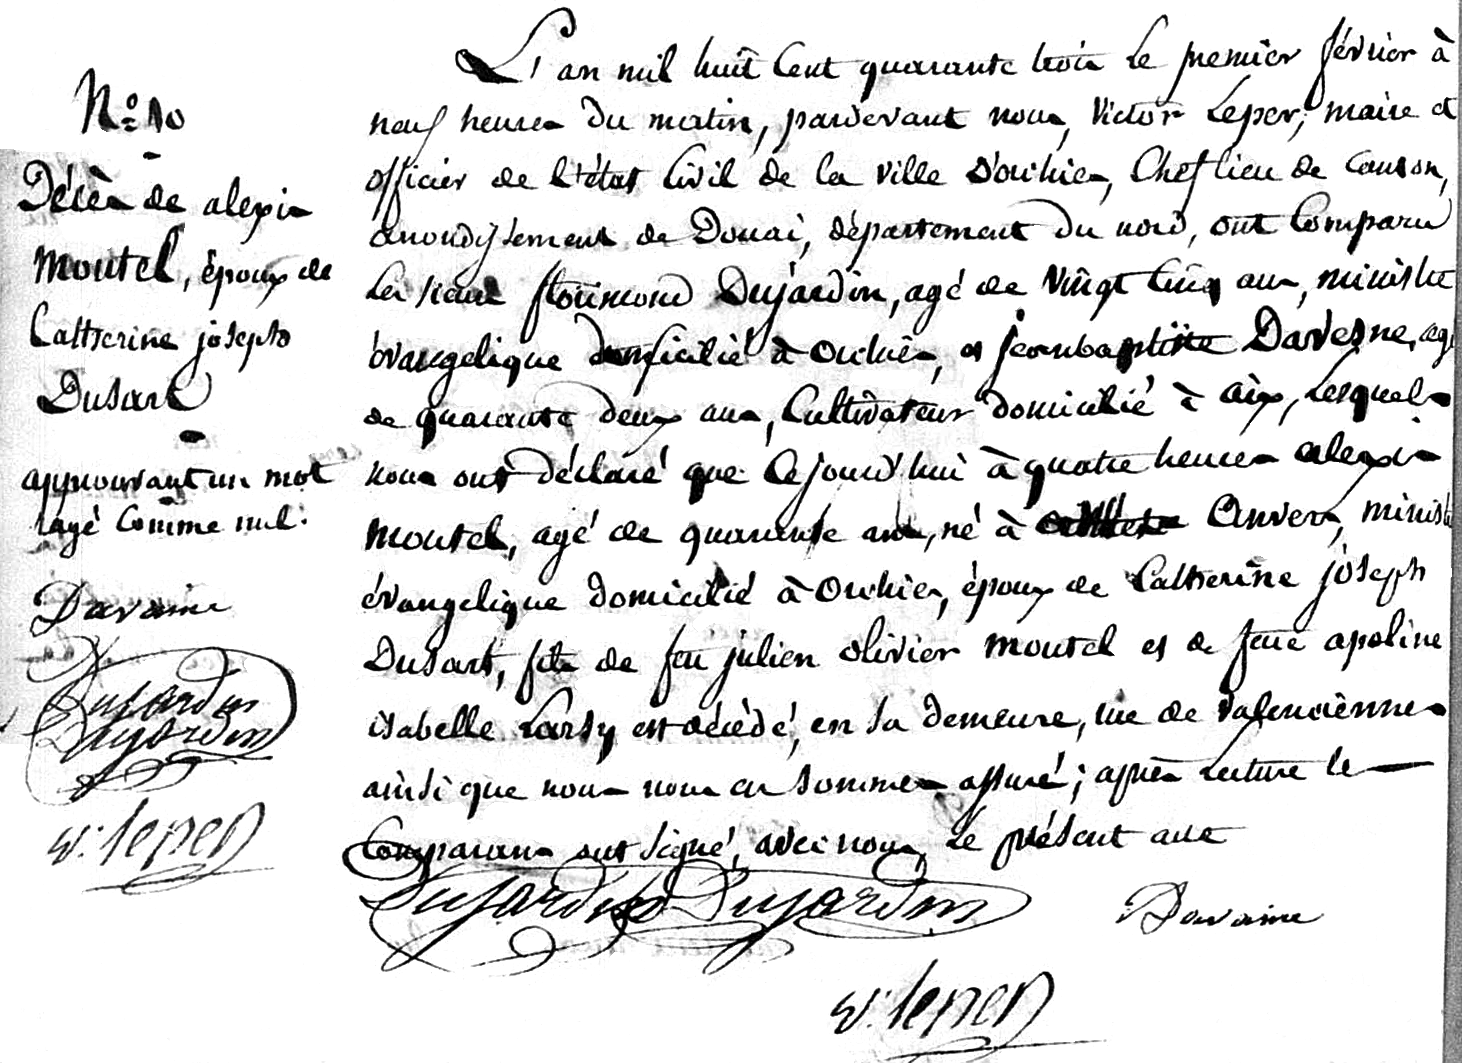 N° 10
Décès de alexis
Moutel, époux de
Catherine joseph
Dusart
approuvant un mot
rayé comme nul.
Davaine
Dujardin
Dujardin
V. Leper
L'an mil huit Cent quarante trois le premier février à
neuf heures du matin, pardevant nous, Victor Leper, maire et
officier de l'état Civil de la ville d'orchies, Chef lieu de canton,
arrondissement de Douai, département du nord, ont Comparu
les sieurs florimond Dujardin, agé de vingt Cinq ans, ministre
évangelique domicilié à Orchies, et jeanbaptiste Davesne, agé
de quarante deux ans, Cultivateur domicilié à aix, Lesquels
nous ont déclaré que Cejourd'hui à quatre heures alexis
Moutel, agé de quarante ans, né à Anvers, ministre
évangelique domicilié à Orchies, époux de Catherine joseph
Dusart, fils de feu julien Olivier Moutel et de feue apoline
isabelle Larsy est décédé, en sa demeure, rue de Valenciennes
ainsi que nous nous en sommes assuré; après Lecture le
Comparans ont signé, avec nous, le présent acte
Dujardin Dujardin Davaine
V. Leper